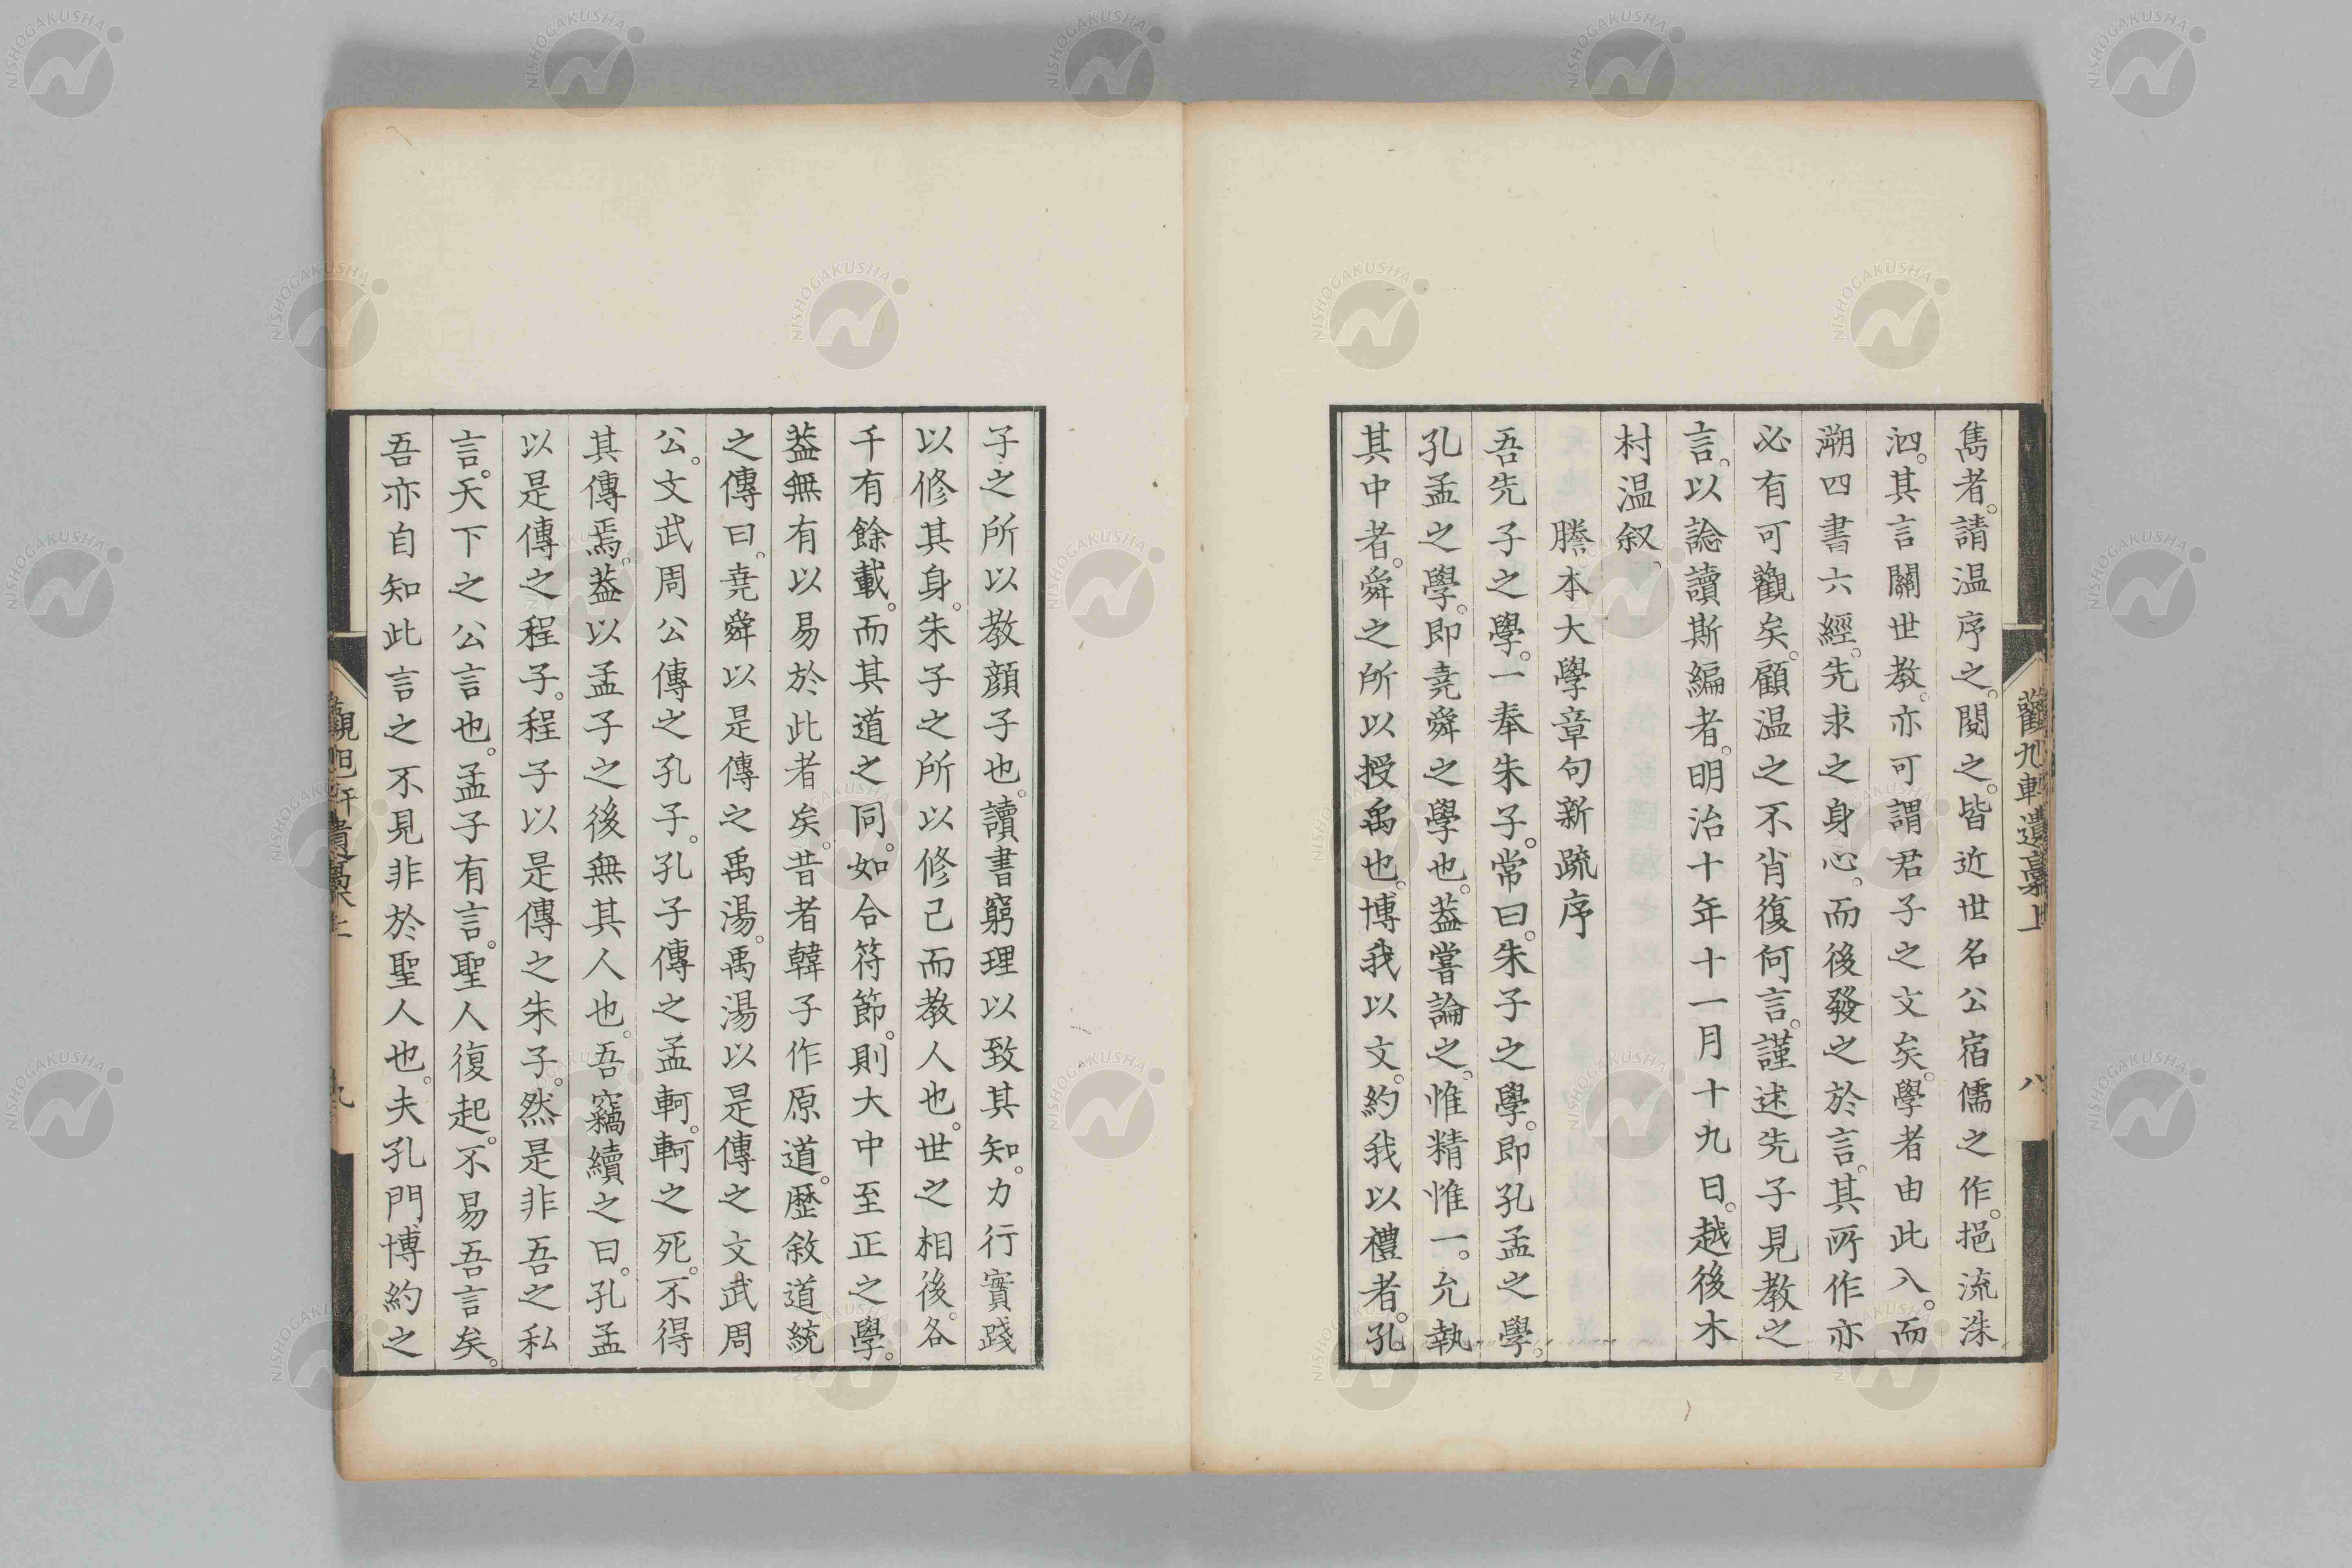 雋者。請温序之。閱之。皆近世名公宿儒之作。挹流洙
泗。其言關世教。亦可謂君子之文矣。學者由此入。而
溯四書六經。先求之身心。而後發之於言。其所作亦
必有可觀矣。顧温之不肖復何言。謹述先子見教之
言。以諗讀斯編者。明治十年十一月十九日。越後木
村温叙。
謄本大學章句新疏序
吾先子之學。一奉朱子。常曰。朱子之學。即孔孟之學。
孔孟之學。即堯舜之學也。葢嘗論之。惟精惟一。允執
其中者。舜之所以授禹也。博我以文。約我以禮者。孔
子之所以教顔子也。讀書窮理以致其知。力行實踐
以修其身。朱子之所以修己而教人也。世之相後。各
千有餘載。而其道之同。如合符節。則大中至正之學。
葢無有以易於此者矣。昔者韓子作原道。歷敘道統
之傳曰。堯舜以是傳之禹湯。禹湯以是傳之文武周
公。文武周公傳之孔子。孔子傳之孟軻。軻之死。不得
其傳焉。葢以孟子之後無其人也。吾竊續之曰。孔孟
以是傳之程子。程子以是傳之朱子。然是非吾之私
言。天下之公言也。孟子有言。聖人復起。不易吾言矣。
吾亦自知此言之不見非於聖人也。夫孔門博約之
觀旭軒遺稾上
八
九
NISHOGAKUSHA